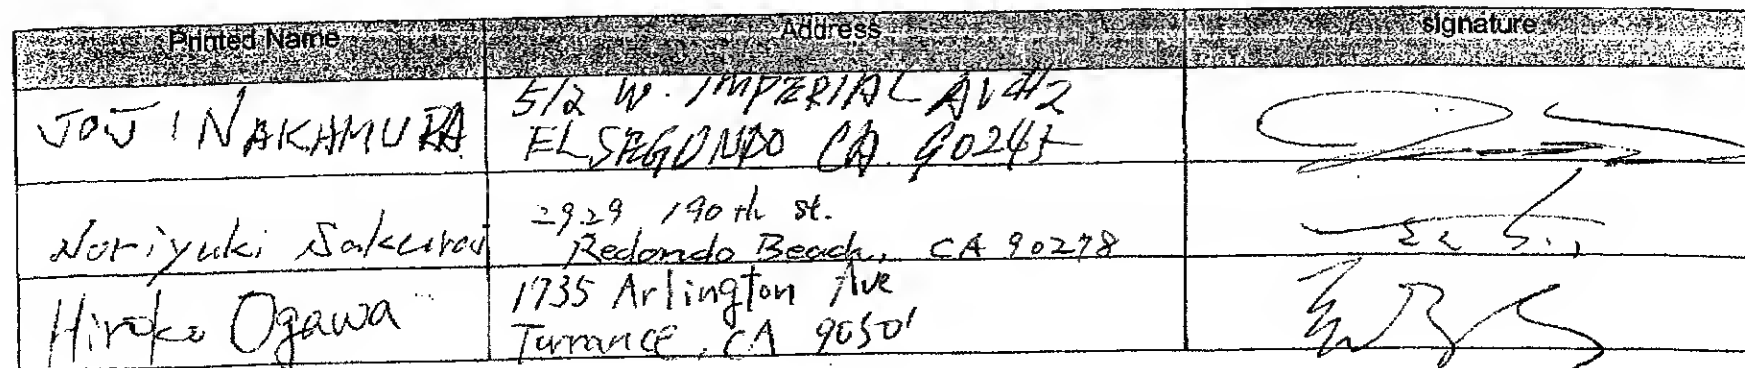 Printed Name Address signature
JOJI NAKAMURA
512 W. IMPERIAL AV #2
EL SEGUNDO CA. 90245
Noriyuki Sakurai
2929 190th st.
Redondo Beach, CA 90278
Hiroko Ogawa
1735 Arlington Ave
Torrance, CA 90501